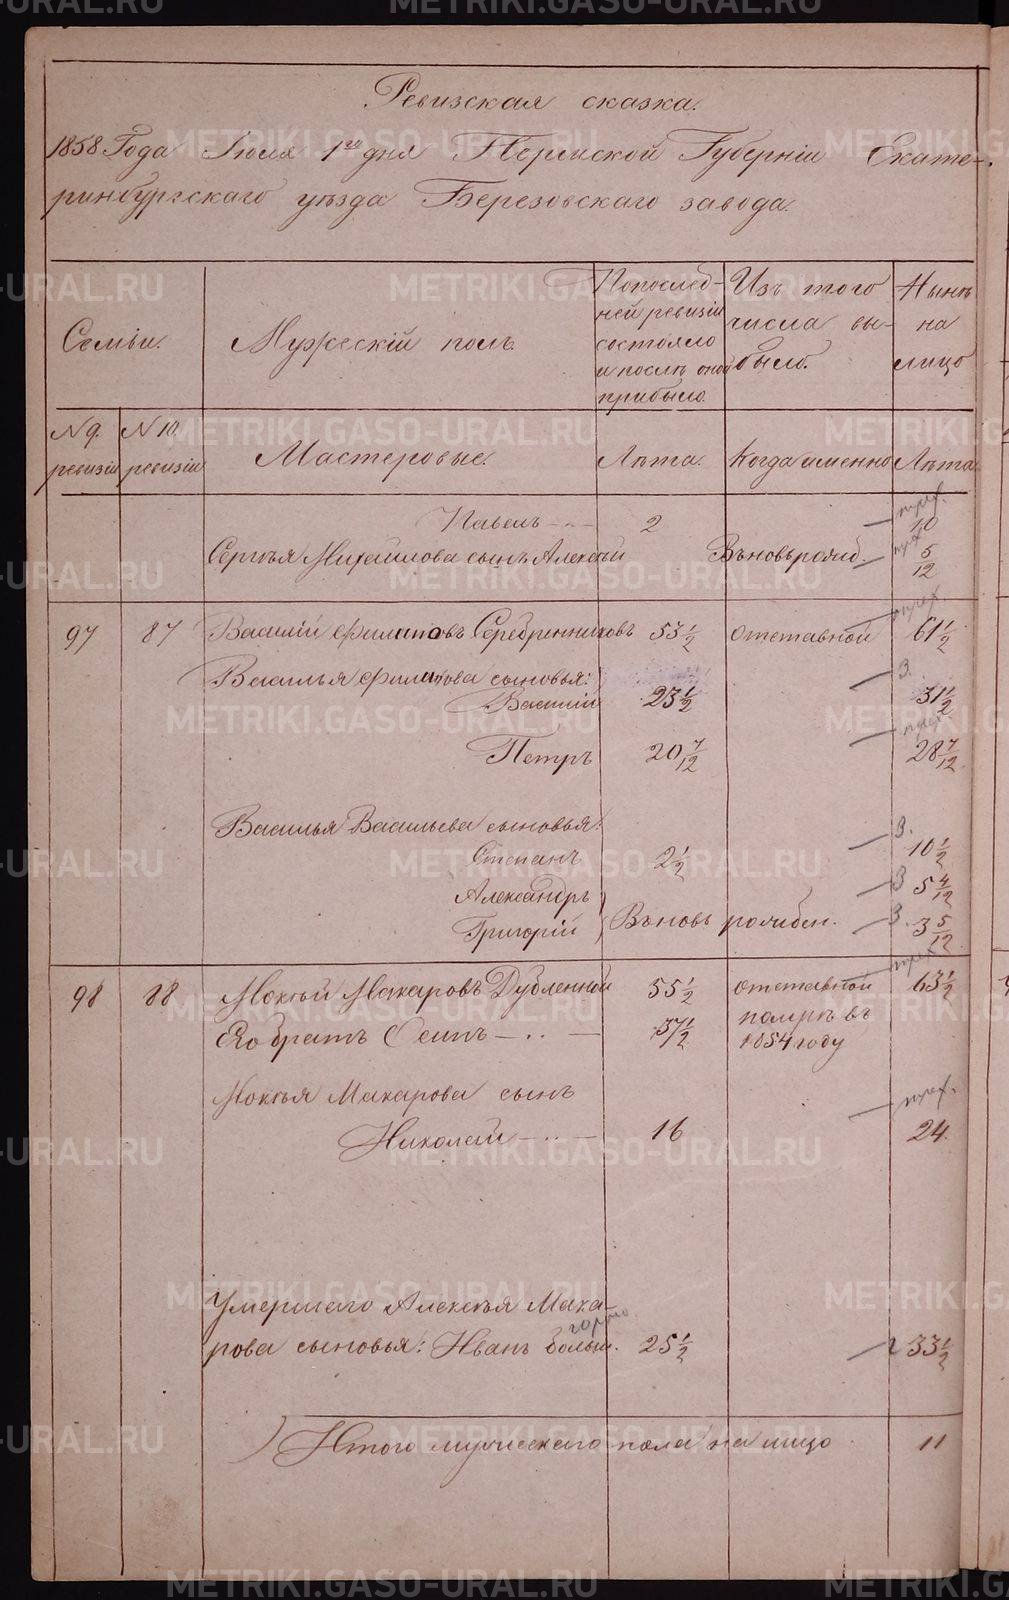 Ревизская сказка.
1858 Года Июля 1го дня Пермской Губерніи Екате-
ринбургскаго уѣзда Березовскаго завода.
Семьи.
Мужескій полъ.
По послед-
ней ревизіи
состояло
и послѣ оной
прибыло.
Изъ того
числа вы-
было.
Нынѣ
на
лицо
N 9.
ревизіи
N 10.
ревизіи
Мастеровые.
Лѣта.
Когда именно
Лѣта
Павелъ 2 10
Сергѣя Михайлова сынъ Алексѣй Вновьрожд. 5/12
97 87 Василій Филиповъ Серебренниковъ 53 1/2 отставной 61 1/2
Василья Филипова сыновья: З.
Василій 23 1/2 31 1/2
Петръ 20 7/12 28 7/12
Василья Васильева сыновья: З.
Степанъ 2 1/2 10 1/2
Александръ З 5 4/12
Григорій Въновь рожден. З. 3 5/12
98 88 Мокѣй Макаровъ Дубленной 55 1/2 отставной 63 1/2
Его братъ Осипъ 37 1/2 померъ въ
1854 году
Мокѣя Макарова сынъ
Николай 16 24.
Умершаго Алексѣя Мака-
рова сыновья: Иванъ больш. 25 1/2 33 1/2
Итого мужескаго пола на лицо 11
METRIKI.GASO-URAL.RU